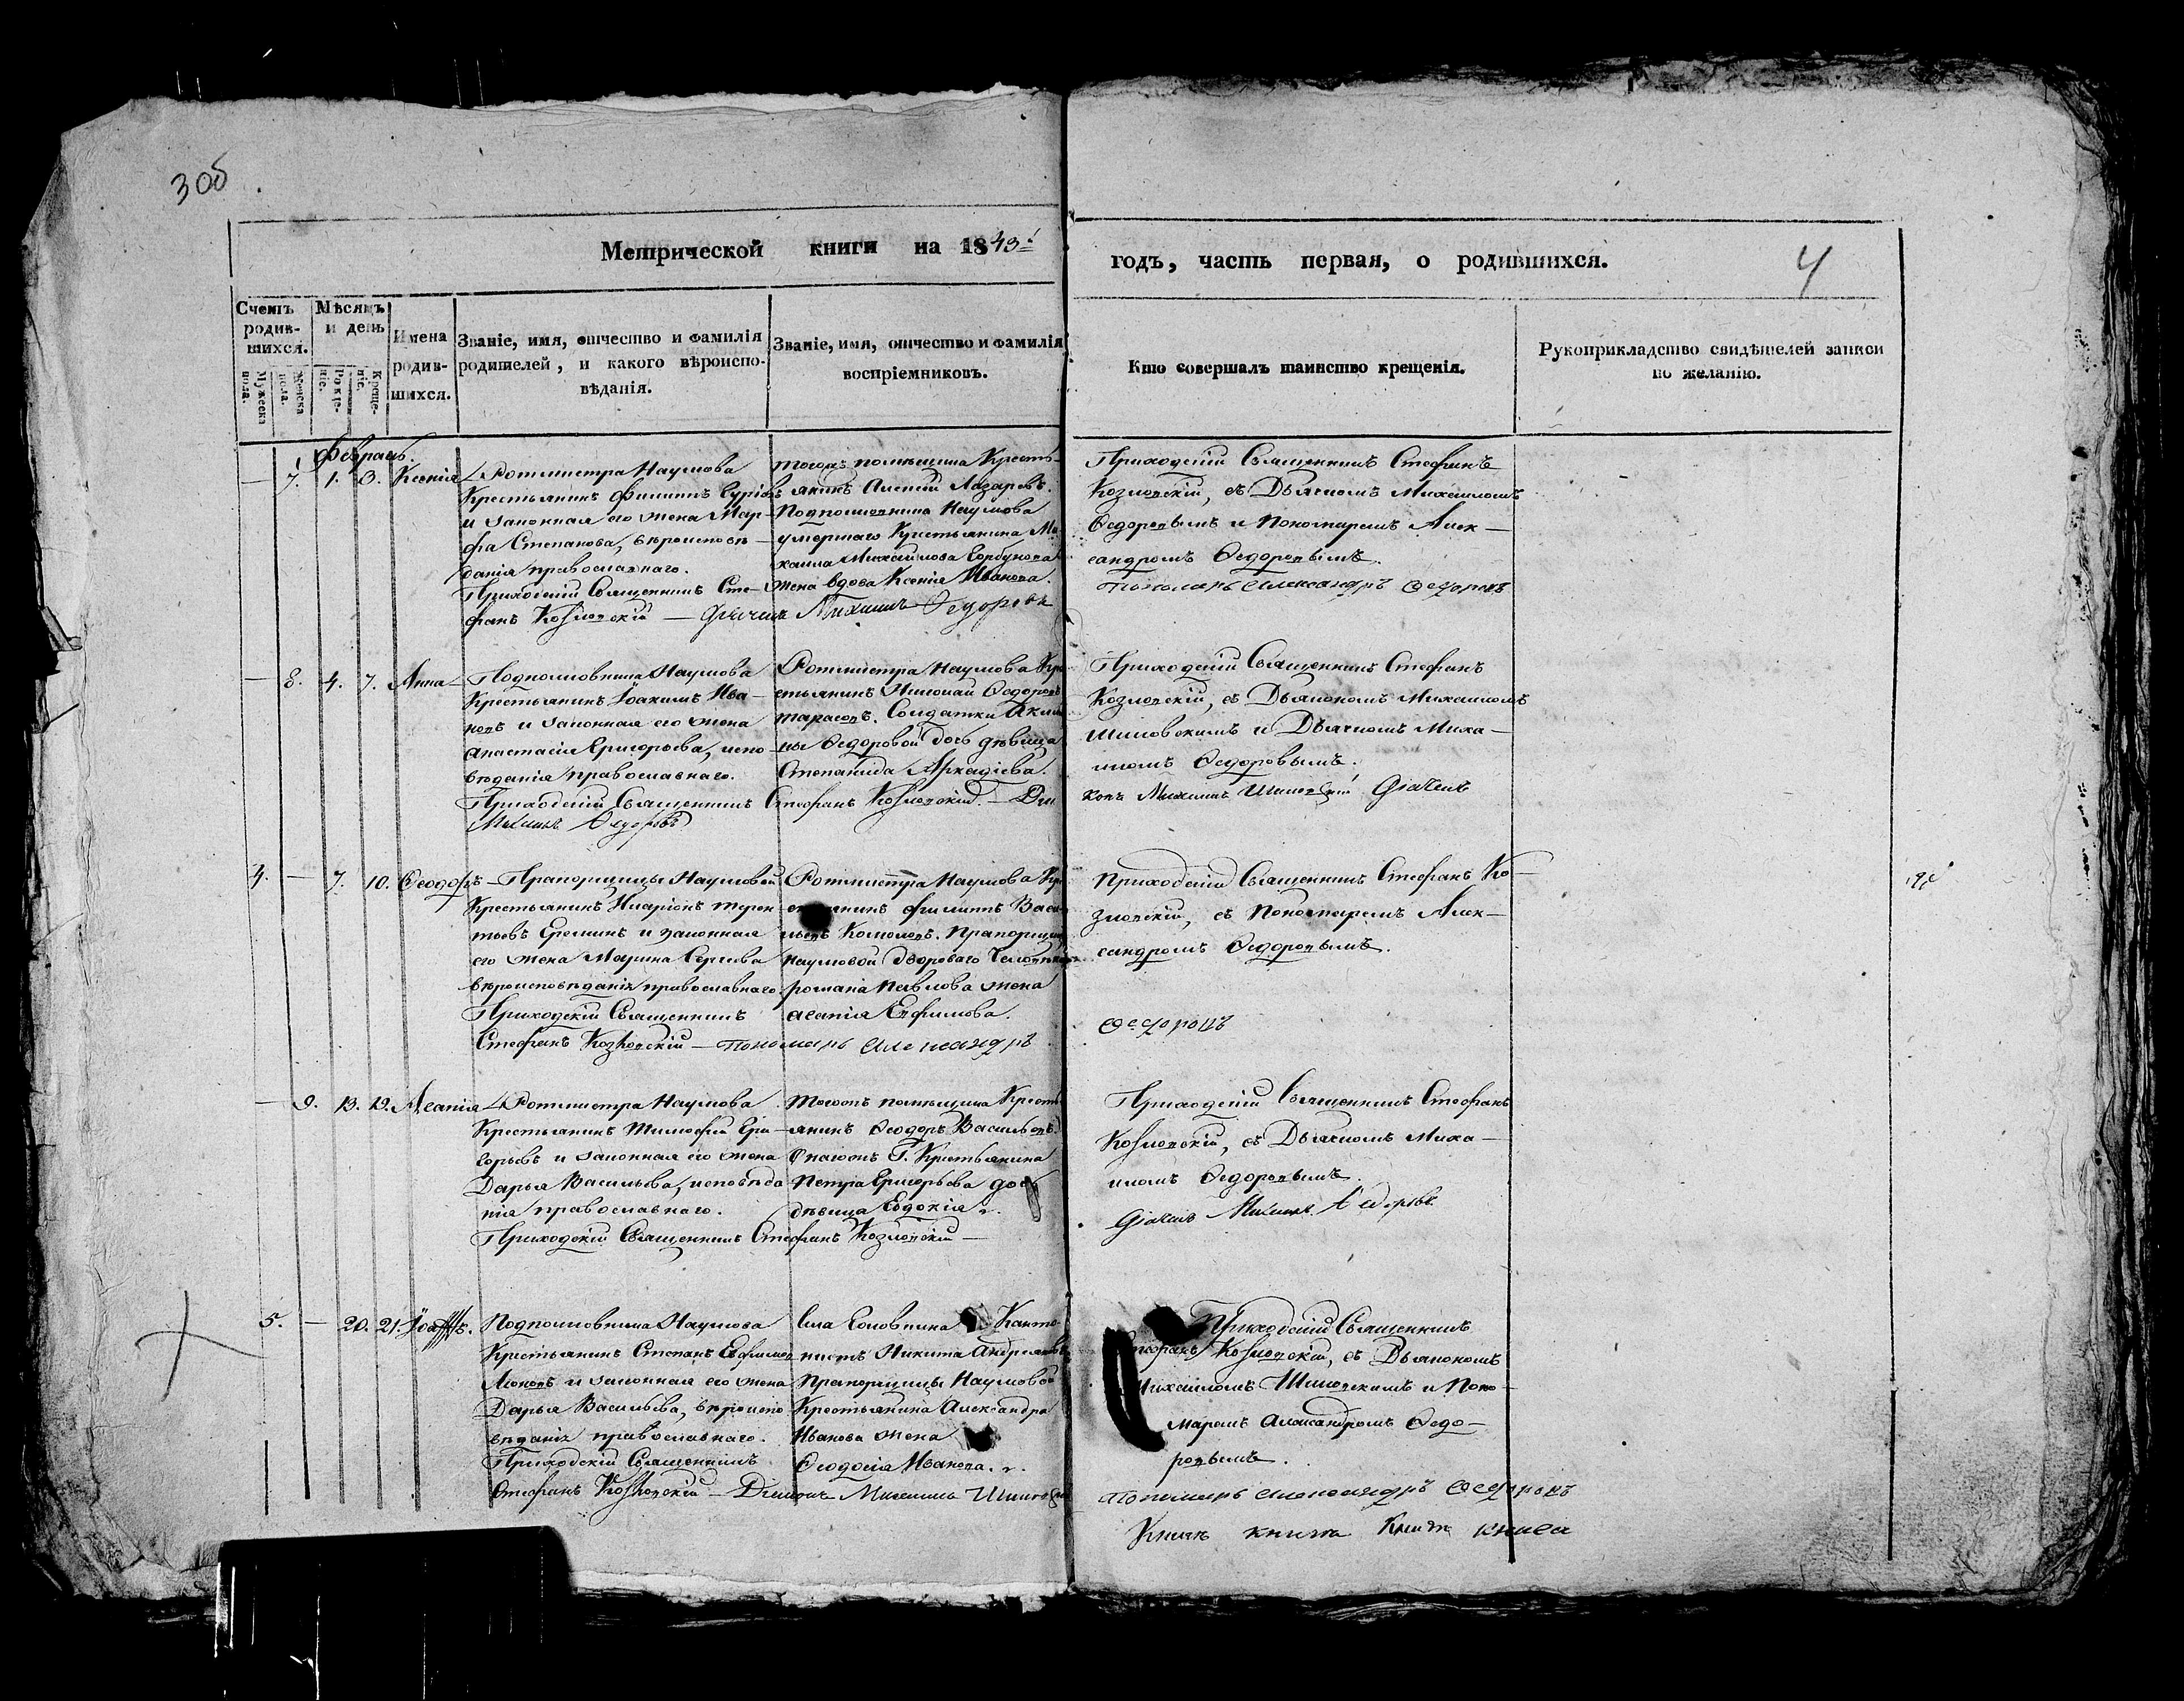 3 об
Метрической книги на 1843й
годъ, часть первая, о родившихся.
4
Счетъ родив-шихся.
Мужеска пола.
Женска пола.
Мѣсяцъ и день
Рожде-нiе.
Креще-нiе.
Имена родив-шихся.
Званiе, имя, отчество и фамилiя
родителей, и какого вѣроиспо-
вѣданiя.
Званiе, имя, отчество и фамилiя
воспрiемниковъ.
Кто совершалъ таинство крещенiя.
Рукоприкладство свидѣтелей записи
по желанiю.
Февраль.
— 7. 1. 3. Ксенiя
Ротмистра Наумова
Крестьянинъ Филиппъ
и законная его жена Мар-
фа Степанова, вѣроисповѣ-
данiя православнаго.
Приходскiй Священникъ Сте-
фанъ Козловскiй — Дячекъ Михаилъ Федоровъ
тогожъ помѣщика Кресть-
янинъ Алексiй Лазаревъ.
Подполковника Наумова
умершаго Крестьянина Ми-
хаила Михайлова Горбунова
жена вдова Ксенiя Иванова.
Приходскiй Священникъ Стефанъ
Козловскiй, съ Дьячкомъ Михаиломъ
Ѳедоровымъ и Пономаремъ Алек-
сандромъ Ѳедоровымъ.
Пономарь Александръ Ѳедоровъ
— 8. 4. 7. Анна
Подполковника Наумова
Крестьянинъ Iоакимъ Ива-
новъ и законная его жена
Анастасiя Григорьева, испо-
вѣданiя православнаго.
Приходскiй Священникъ Стефанъ Козловскiй. — Дiя
Михаилъ Ѳедоровъ
Ротмистра Наумова Кре
стьянинъ Николай Ѳедоровъ
Тарасовъ. Солдатки Акили
ны Ѳедоровой дочь дѣвица
Степанида Аркадiева.
Приходскiй Священникъ Стефанъ
Козловскiй, съ Дьякономъ Михаиломъ
Шиловскимъ и Дьячкомъ Миха-
иломъ Ѳедоровымъ.
конъ Михаилъ Шиловскiй Дiячекъ
4. — 7. 10. Ѳеодоръ
Прапорщицы Наумовой
Крестьянинъ Иларiонъ Терен
тьевъ Ереминъ и законная
его жена Марина Сергеева
вѣроисповѣданiя православнаго.
Приходскiй Священникъ
Стефанъ Козловскiй — Пономарь Александръ
Ротмистра Наумова Кре
Филиппъ Васи-
льевъ Прапорщицы
Наумовой двороваго Человѣка
Романа Павлова жена
Агапiя Евфимова.
Приходскiй Священникъ Стефанъ Ко-
зловскiй, съ Пономаремъ Алек-
сандромъ Ѳедоровымъ.
Ѳедоровъ
— 9. 13. 19. Агапiя
Ротмистра Наумова
Крестьянинъ Тимофей Гри-
горьевъ и законная его жена
Дарья Васильева, исповѣда
нiя православнаго.
Приходскiй Священникъ Стефанъ Козловскiй —
Тогожъ помѣщика Кресть
янинъ Ѳеодоръ Васильевъ.
Онагожъ Г. Крестьянина
Петра Григорьева дочь
дѣвица Евдокiя.
Приходскiй Священникъ Стефанъ
Козловскiй, съ Дьячкомъ Миха-
иломъ Ѳедоровымъ.
Дiячекъ Михаилъ Ѳедоровъ
5. — 20. 21.
Подполковника Наумова
Крестьянинъ Степанъ Евфимов
и законная его жена
Дарья Васильева, вѣроиспо
вѣданiя православнаго.
Приходскiй Священникъ
Стефанъ Козловскiй — Дiаконъ Михаилъ Шиловскiй
Села Канто-
нистъ Никита Андреяновъ
Прапорщицы Наумовой
Крестьянина Александра
Иванова жена
Ѳеодосiя Иванова.
Приходскiй Священникъ
Стефанъ Козловскiй, съ Дьякономъ
Михаиломъ Шиловскимъ и Поно-
маремъ Александромъ Ѳедо-
ровымъ.
Пономарь Александръ Ѳедоровъ
книга книга книга